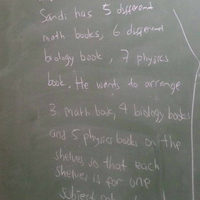 Sandi has 5 different
math books, 6 different
biology book, 7 physics
book. He wants to arrange
3 math book, 4 biology books
and 5 physics books on the
shelves so that each
shelves is for one
subject